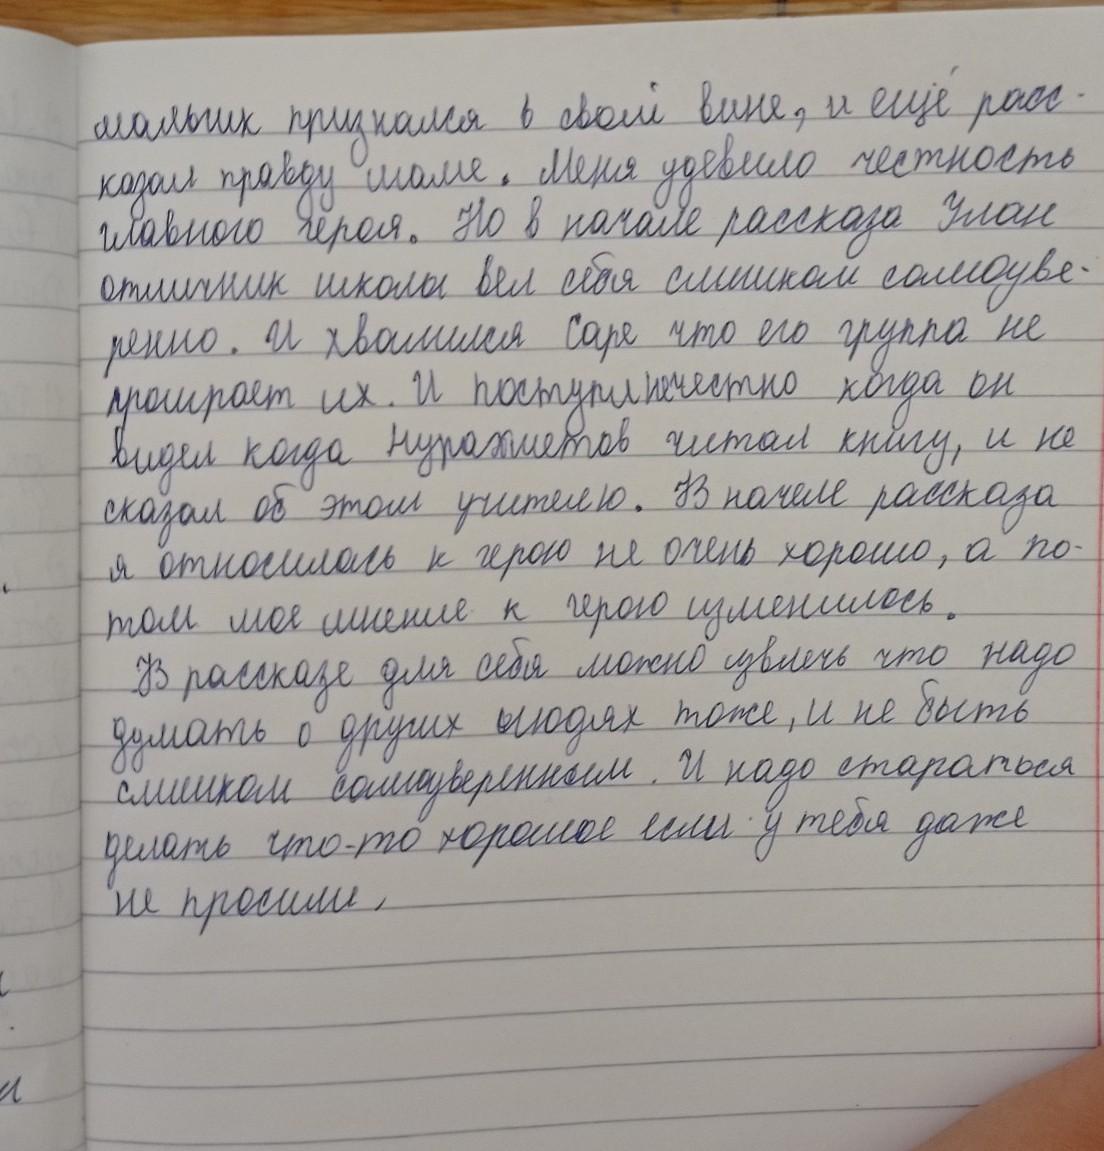 мальчик признался в своей вине, и ещё расс-
казал правду маме. Меня удевило честность
главного героя. Но в начале рассказа Улан
отличник школы вел себя слишком самоуве-
ренно. И хвалился Саре что его группа не
проиграет их. И поступил нечестно когда он
видел когда Нурахметов читал книгу, и не
сказал об этом учителю. В начеле рассказа
я относилась к герою не очень хорошо, а по-
том мое мнение к герою изменилось.
В рассказе для себя можно извлечь что надо
думать о других людях тоже, и не быть
слишком самоуверенным. И надо стараться
делать что-то хорошое если у тебя даже
не просили.